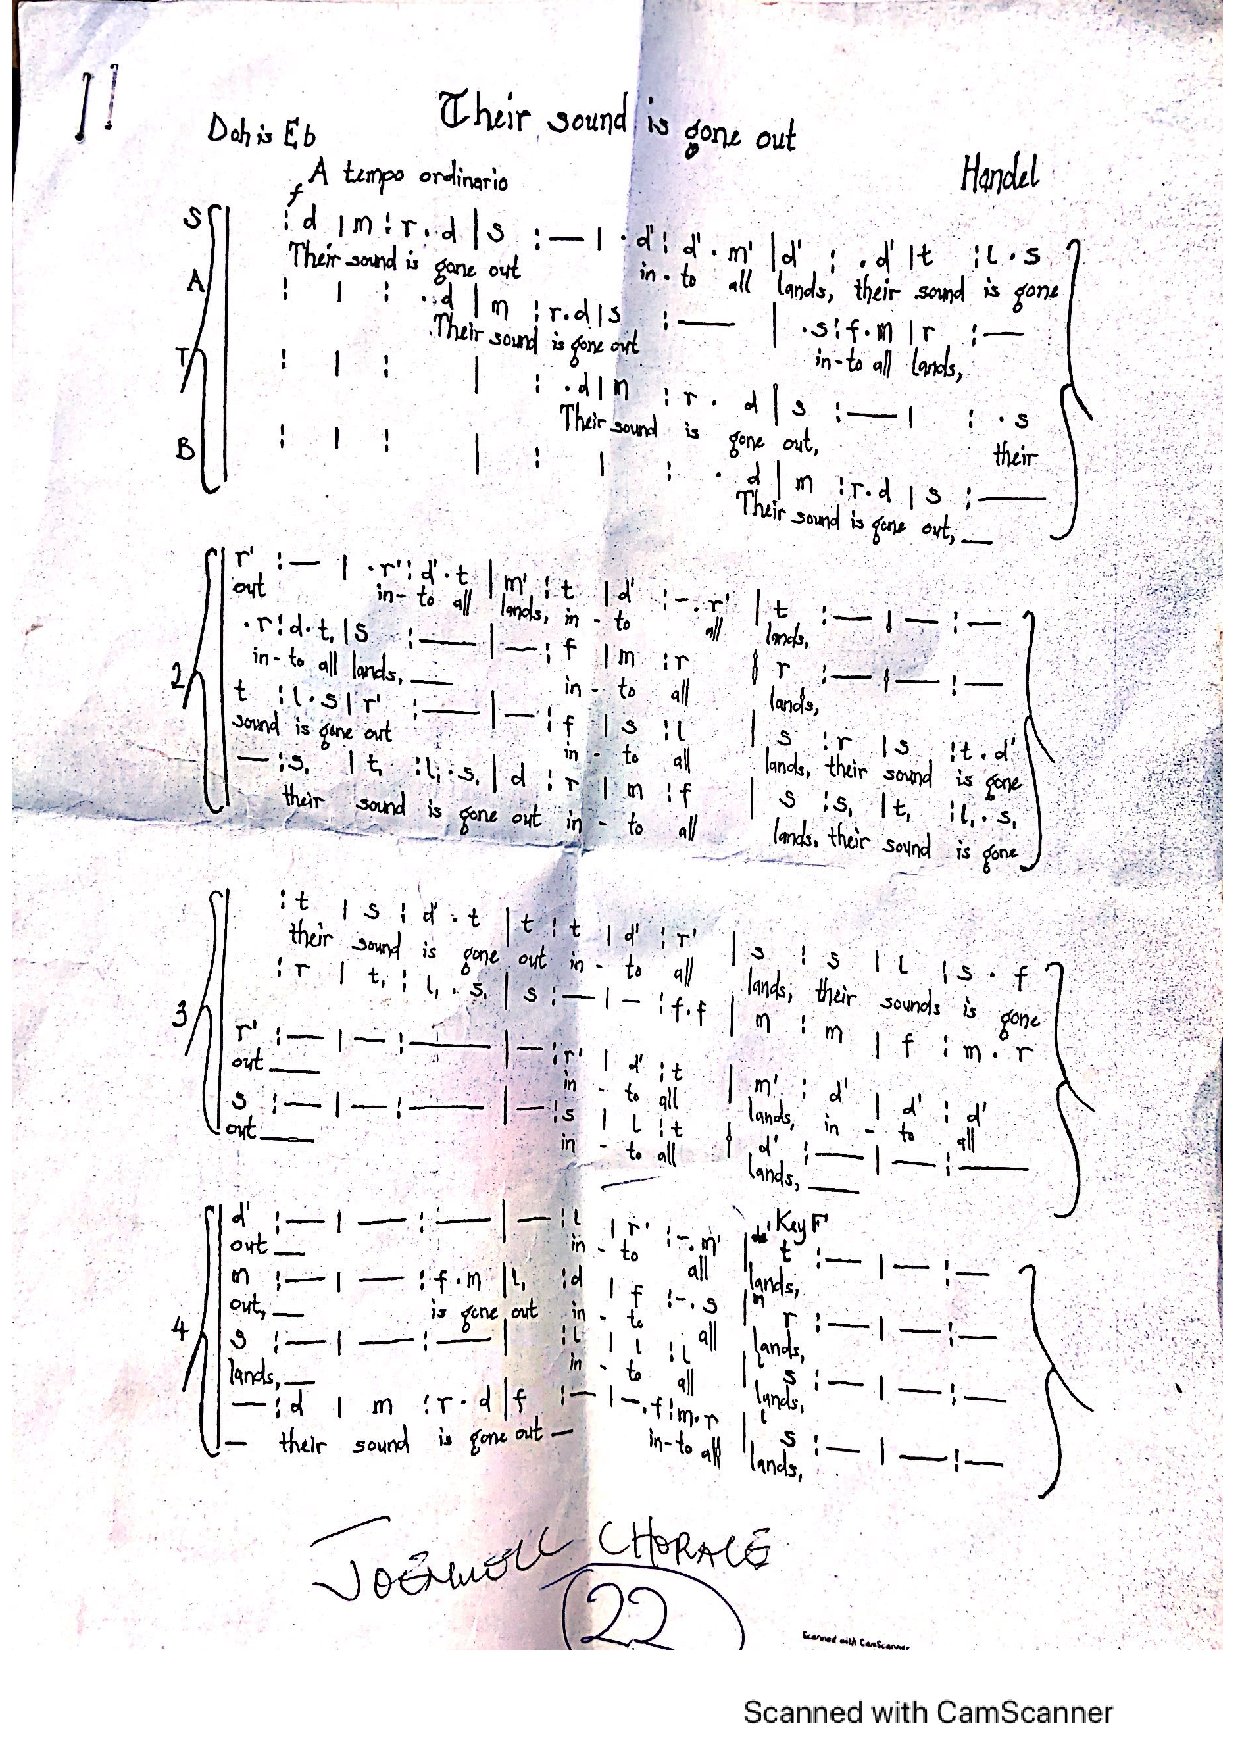 11
Their sound is gone out
Doh is Eb
Handel
A tempo ordinario
f
S : d | m : r . d | s : — | . d' : d' . m' | d' : . d' | t : l . s
Their sound is gone out in - to all lands, their sound is gone
A : | : . d | m : r . d | s : — | . s : f . m | r : —
Their sound is gone out in - to all lands,
T : | : | : . d | m : r . d | s : — | : . s
Their sound is gone out, their
B : | : | : | : . d | m : r . d | s : —
Their sound is gone out, —
2
r' : — | . r' : d' . t | m' : t | d' : - . r' | t : — | — : —
out in - to all lands, in - to all lands,
. r : d . t, | s : — | — : f | m : r | r : — | — : —
in - to all lands, — in - to all lands,
t : l . s | r' : — | — : f | s : l | s : r | s : t . d'
sound is gone out in - to all lands, their sound is gone
— : s, | t, : l, . s, | d : r | m : f | s : s, | t, : l, . s,
their sound is gone out in - to all lands. their sound is gone
3
: t | s : d' . t | t : t | d' : r' | s : s | l : s . f
their sound is gone out in - to all lands, their sounds is gone
: r | t, : l, . s, | s : — | — : f . f | m : m | f : m . r
r' : — | — : — | — : r' | d' : t | m' : d' | d' : d'
out — in - to all lands, in - to all
s : — | — : — | — : s | l : t | d' : — | — : —
out — in - to all lands, —
4
Key F
d' : — | — : — | — : l | r' : - . m' | t : — | — : —
out — in - to all lands,
m : — | — : f . m | l, : d | f : - . s | m r : — | — : —
out, — is gone out in - to all lands,
s : — | — : — | : l | l : l | l s : — | — : —
lands, — in - to all lands,
— : d | m : r . d | f : — | — . f : m . r | l s : — | — : —
— their sound is gone out — in - to all lands,
JOEMWELL CHORALE
22
Scanned with CamScanner
Scanned with CamScanner